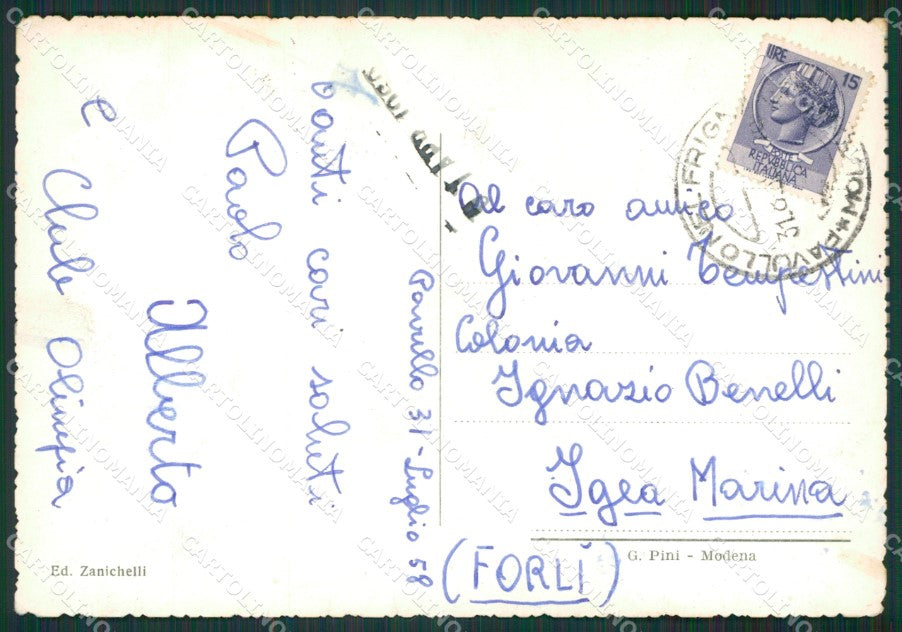 Pavullo 31-Luglio 58
tanti cari saluti
Paolo
Alberto
e Club Olimpia
Al caro amico
Giovanni Tempestini
Colonia
Ignazio Benelli
Igea Marina
(FORLÌ)
G. Pini - Modena
Ed. Zanichelli
LIRE 15
POSTE
REPVBBLICA
ITALIANA
PAVULLO NEL FRIGNA
CARTOLINOMANIA